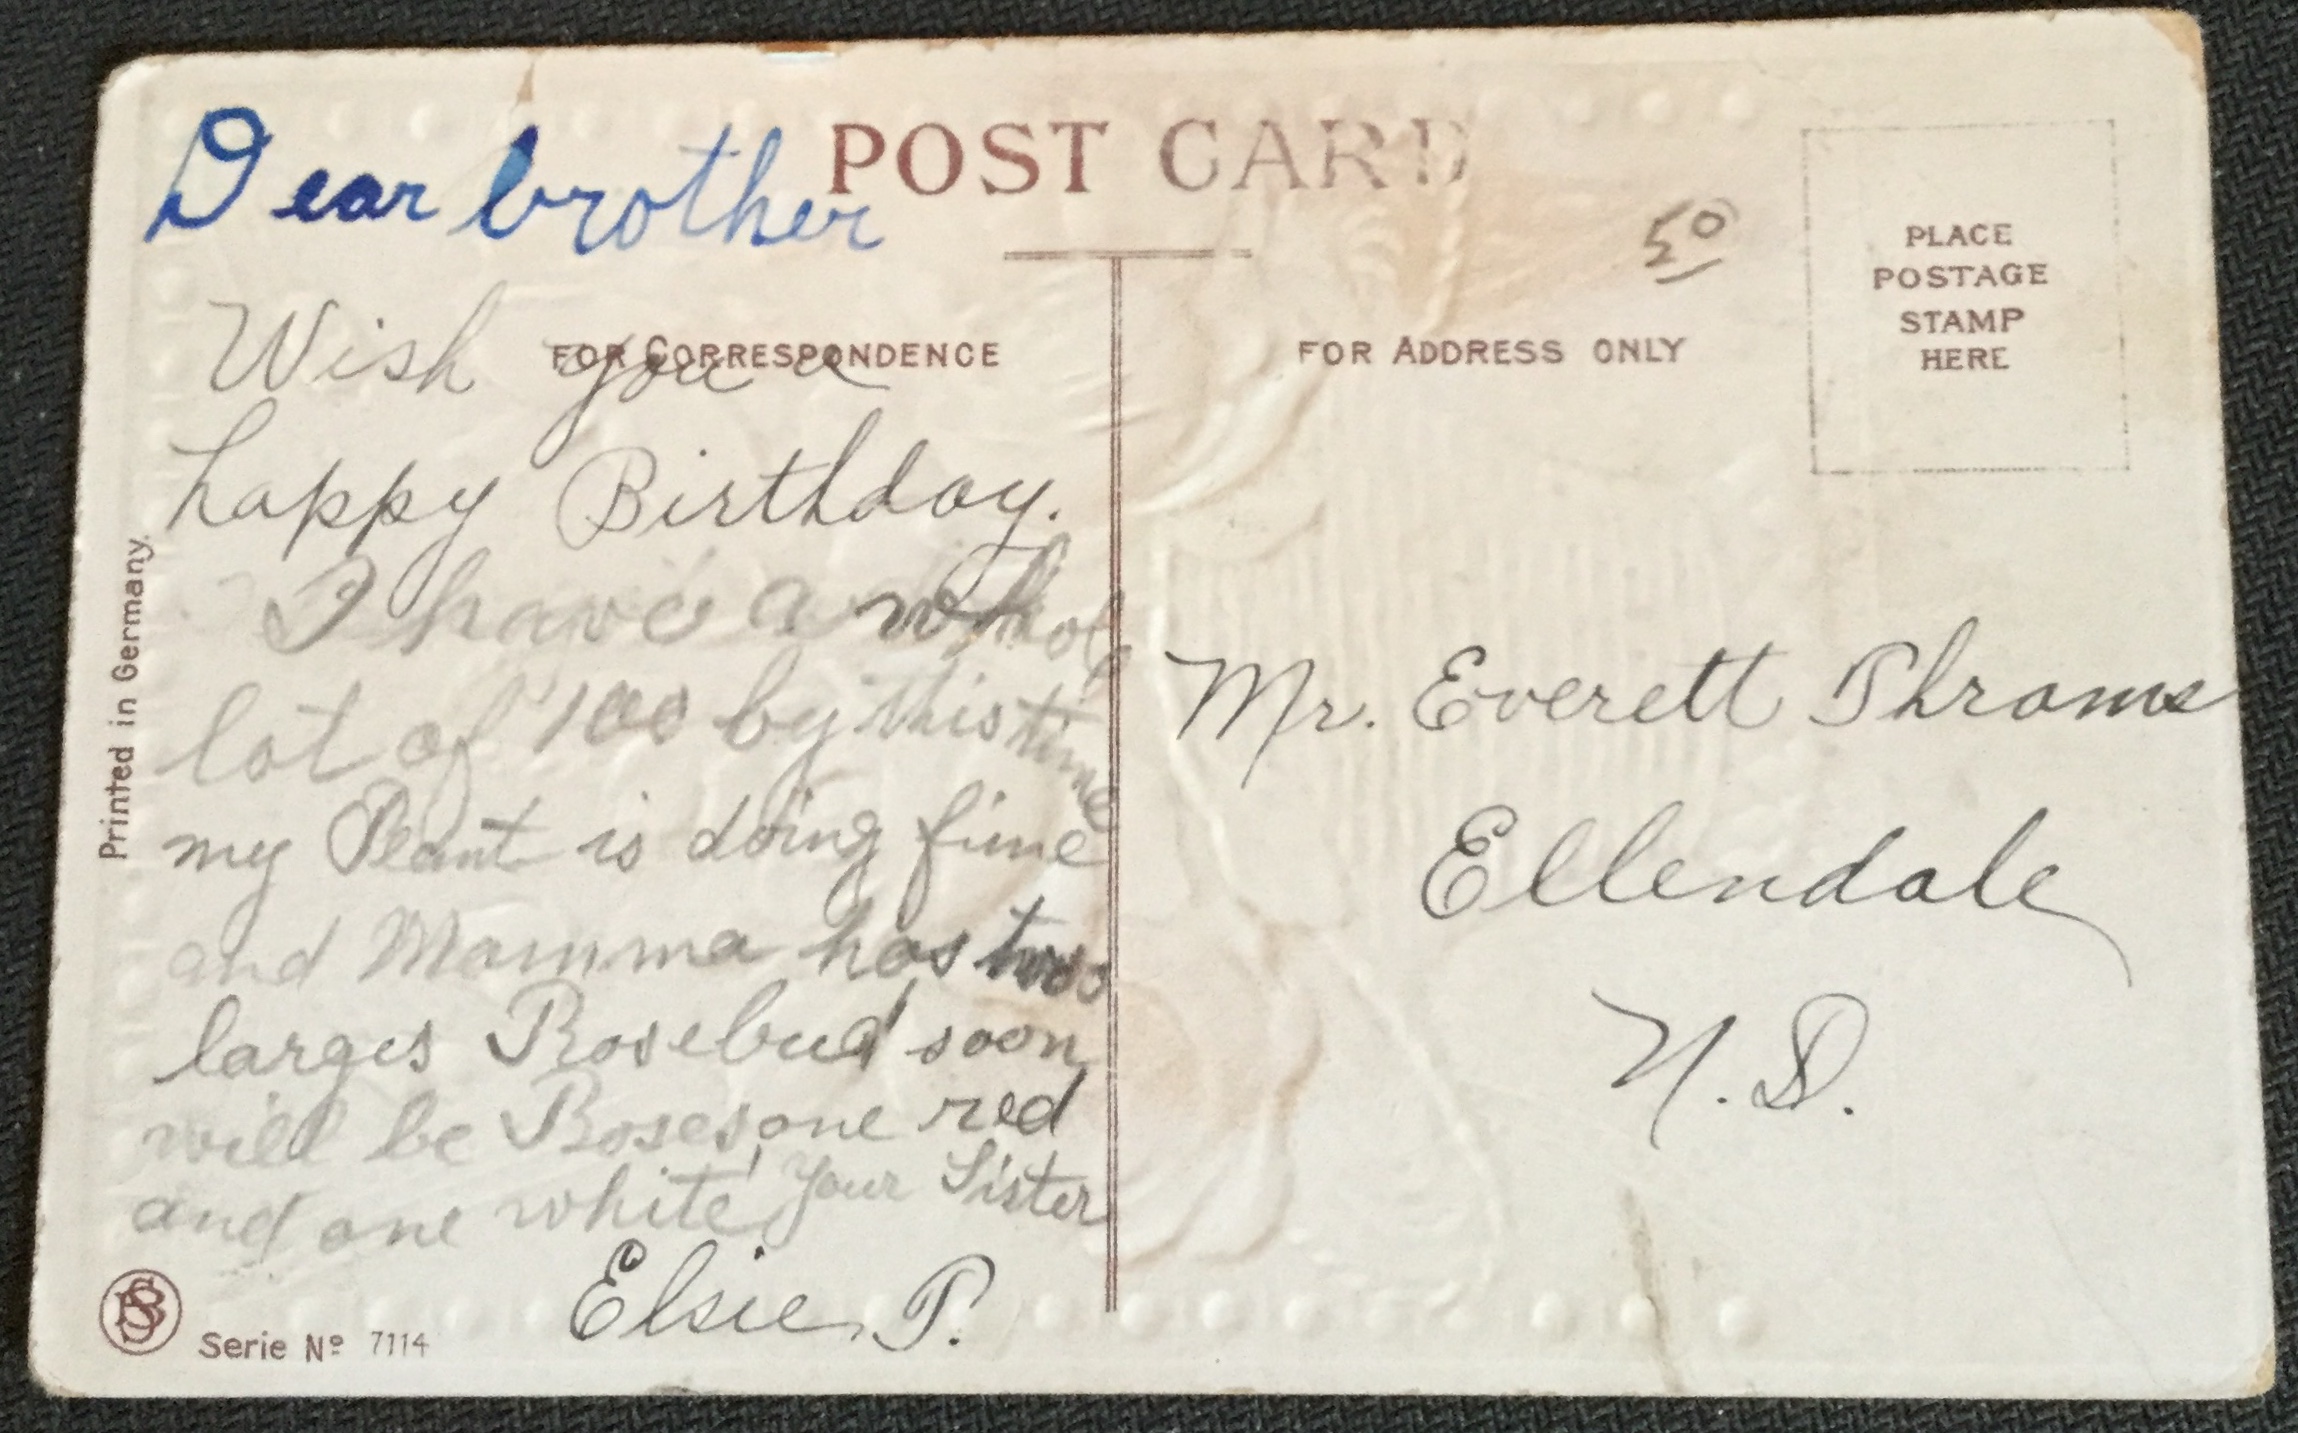 Dear brother
POST CARD
50
PLACE
POSTAGE
STAMP
HERE
FOR CORRESPONDENCE
FOR ADDRESS ONLY
Wish you a
happy Birthday.
I have a whole
lot of 100 by this time
my Plant is doing fine
and Mamma has two
larges Rosebud soon
will be Roses, one red
and one white, Your Sister
Elsie P.
Mr. Everett
Ellendale
N. D.
Printed in Germany.
Serie Nº 7114